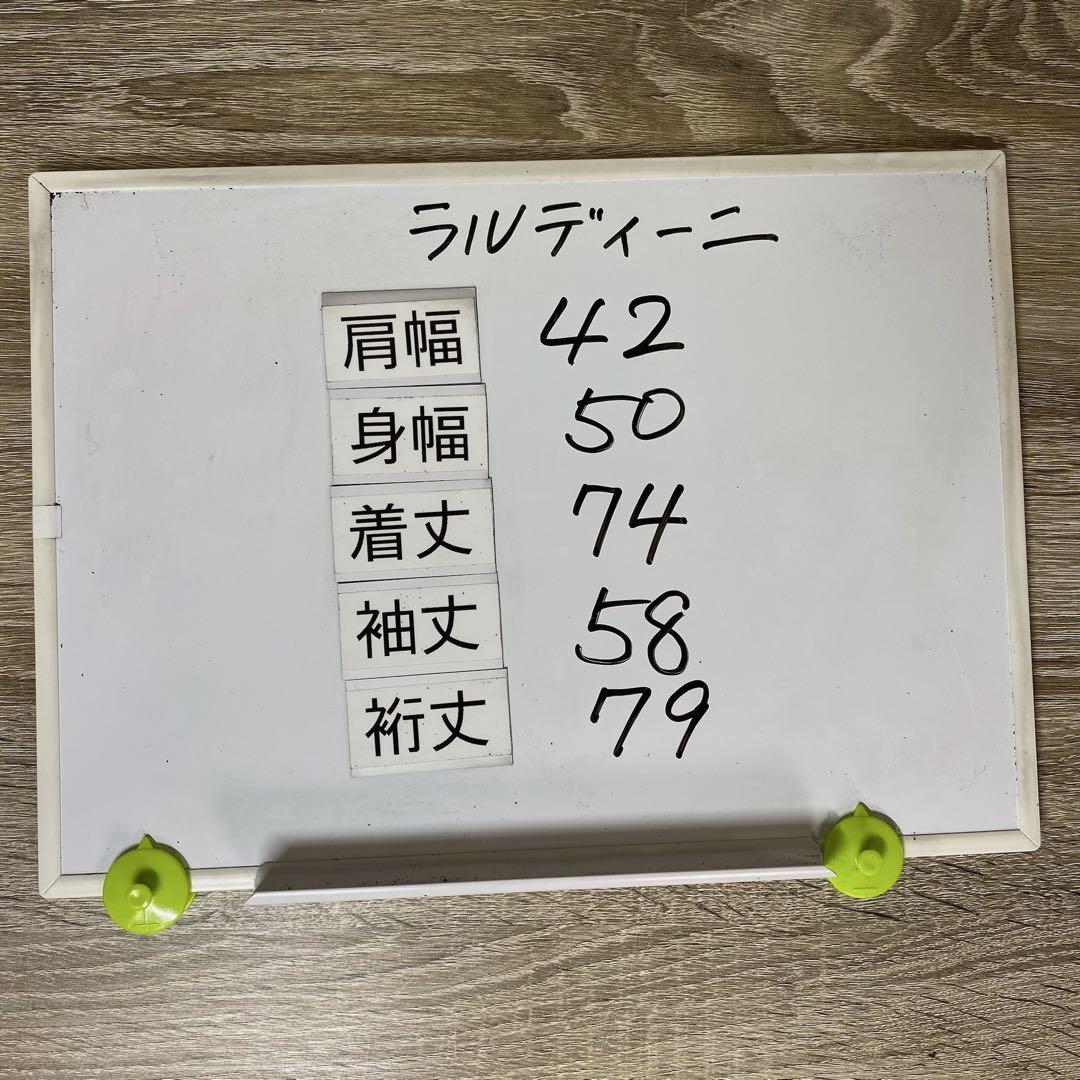 ラルディーニ
肩幅 42
身幅 50
着丈 74
袖丈 58
裄丈 79